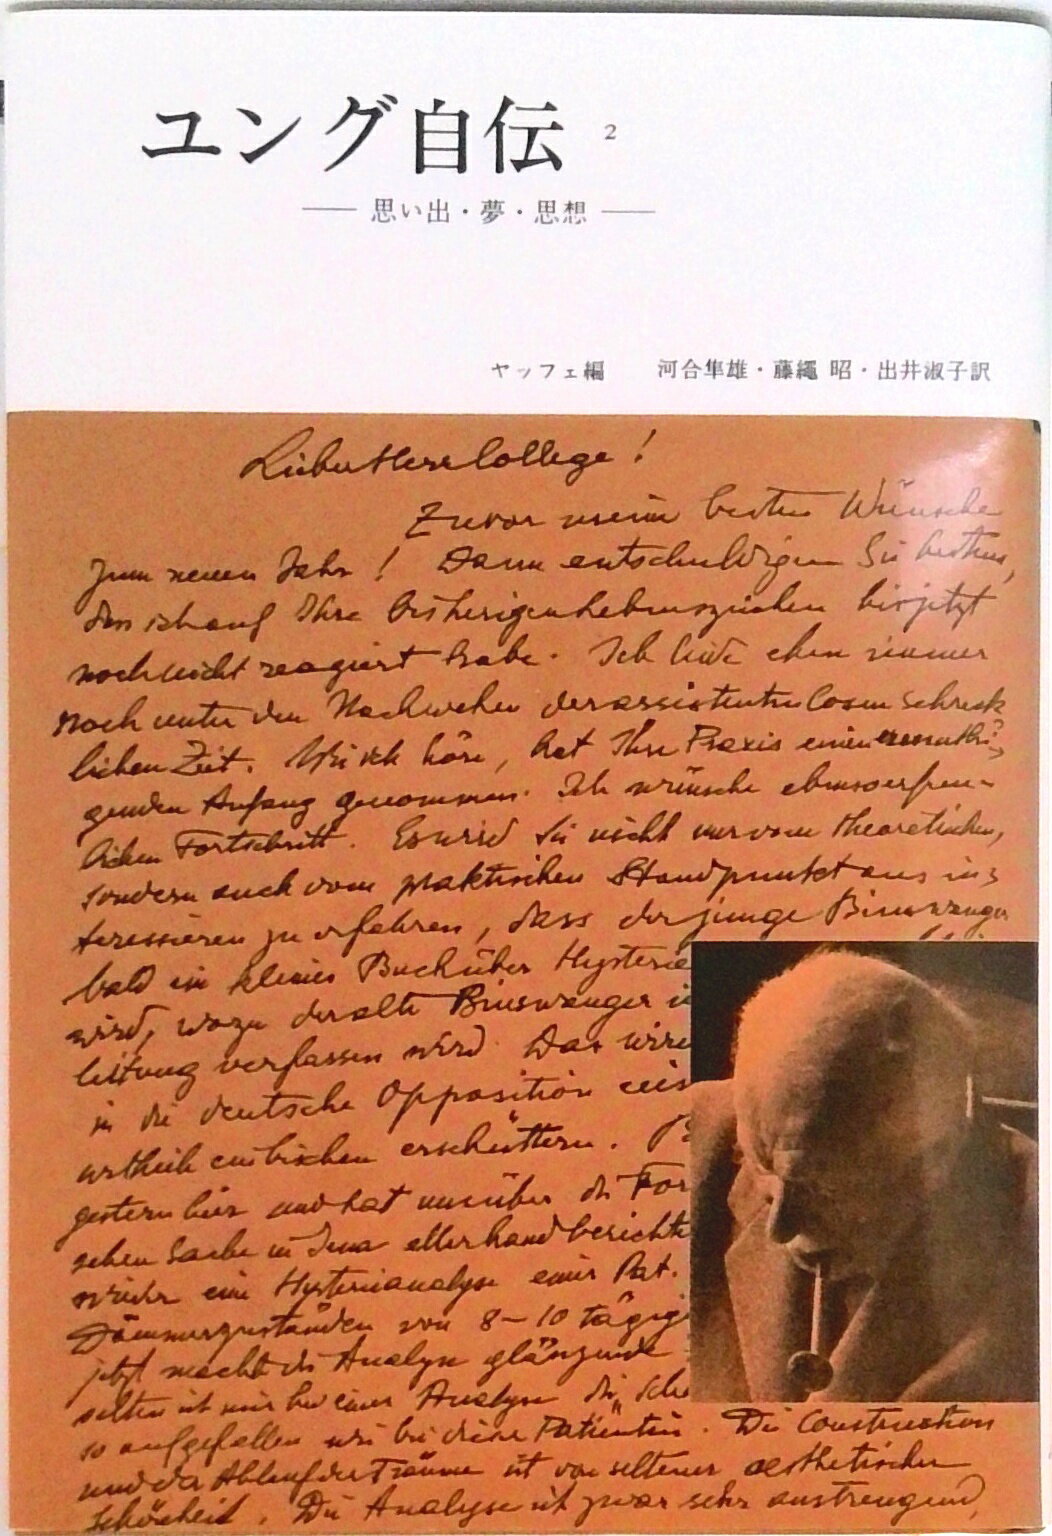 ユング自伝 2
— 思い出・夢・思想 —
ヤッフェ編 河合隼雄・藤繩 昭・出井淑子訳
Lieber Herr College!
Zuvor meine besten Wünsche
zum neuen Jahr! Dann entschuldigen Sie bestens,
dass ich auf Ihre bisherigen Lebenszeichen bis jetzt
noch nicht reagiert habe. Ich leide eben immer
noch unter den Nachwehen der assistentenlosen schreck
lichen Zeit. Wie ich höre, hat Ihre Praxis einen ermuthi-
genden Anfang genommen. Ich wünsche ebenso erfreu-
lichen Fortschritt. Es wird Sie nicht nur vom theoretischen,
sondern auch vom praktischen Standpunkt aus in-
teressieren zu erfahren, dass der junge Binswanger
bald ein kleines Buch über Hysterie
wird, wozu der alte Binswanger
leitung verfassen wird. Das wird
in die deutsche Opposition
urtheile ein bischen erschüttern.
gestern hier und hat uns über die
schen Sache in Jena allerhand
wieder eine Hysterieanalyse einer Pat.
Dämmerzuständen von 8-10
jetzt macht die Analyse glänzende
selten ist mir bei einer Analyse die
so aufgefallen wie bei dieser Patientin. Die Construction
und der Ablauf der Träume ist von seltener aesthetischer
Schönheit. Die Analyse ist zwar sehr anstrengend,